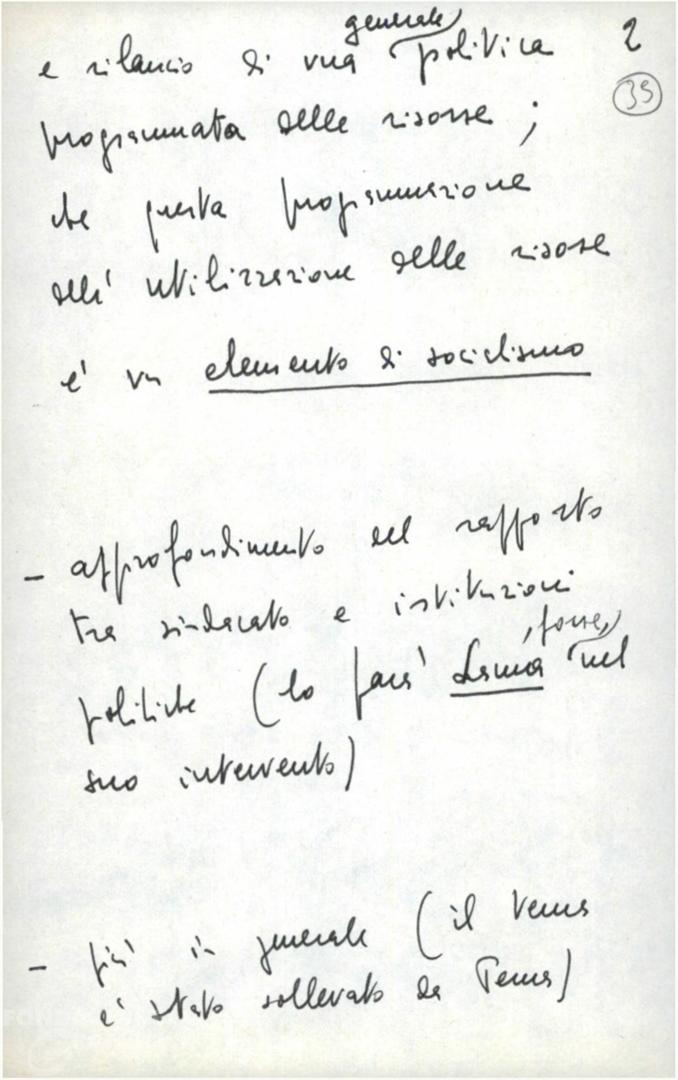 2
generale
e rilancio di una politica
35
programmata delle risorse ;
che questa programmazione
dell' utilizzazione delle risorse
e' un elemento di socialismo
- approfondimento del rapporto
tra sindacato e istituzioni
, forse,
politiche (lo fara' Lama nel
suo intervento)
- piu' in generale (il tema
e' stato sollevato da